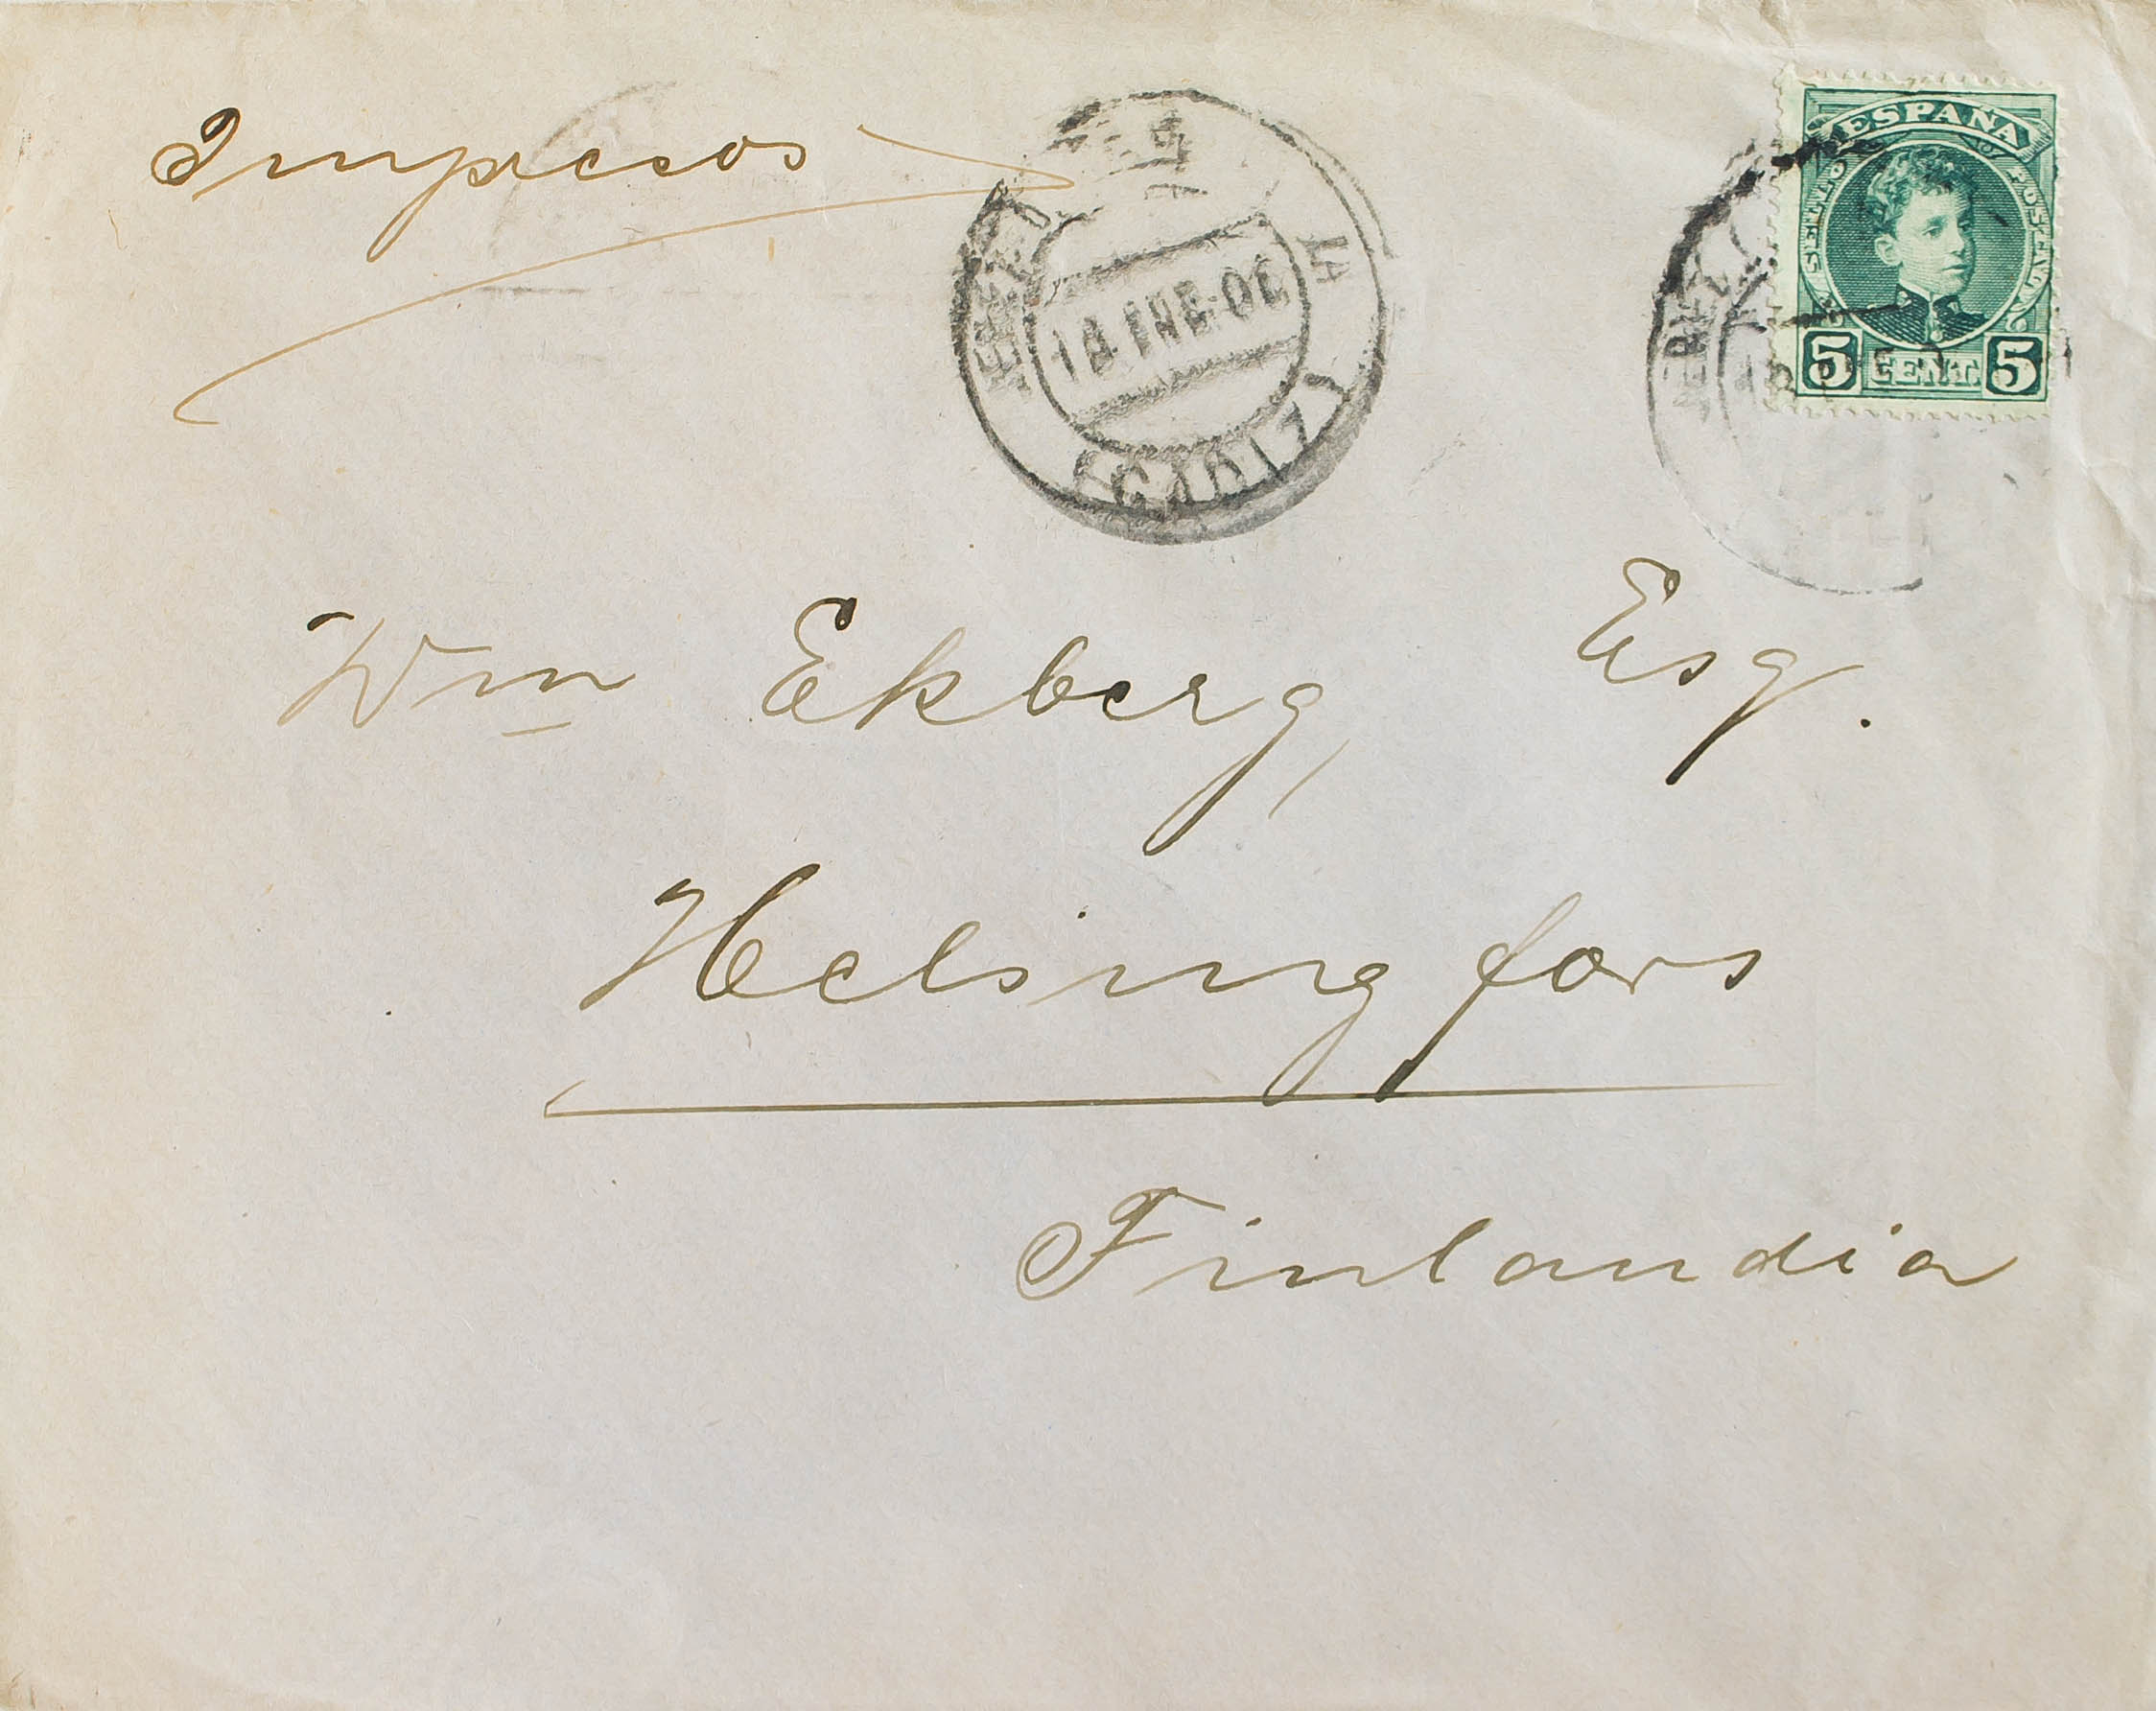 Impresos
ESPAÑA
SELLO POSTAL
5 CENT. 5
JEREZ
LA
18 ENE 06
(CADIZ)
Wm Ekberg, Esq.
Helsingfors
Finlandia